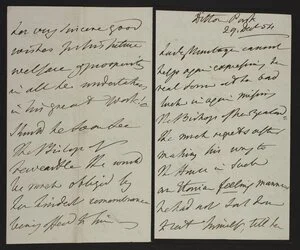 Ditton Park
29. Oct 54
Lady Montagu cannot
help again expressing her
real sorrow at the bad
luck in again missing
the Bishop of New Zealand
She much regrets after
making his way to
the House in such
an Honor feeling manner
he had not Sat down
& eat himself, till he
her very sincere good
wishes for his future
welfare
in all he undertakes
in his great Work
Should he ever see
The Bishop of
Newcastle She would
be much obliged by
her kindest remembrance
being offered to him